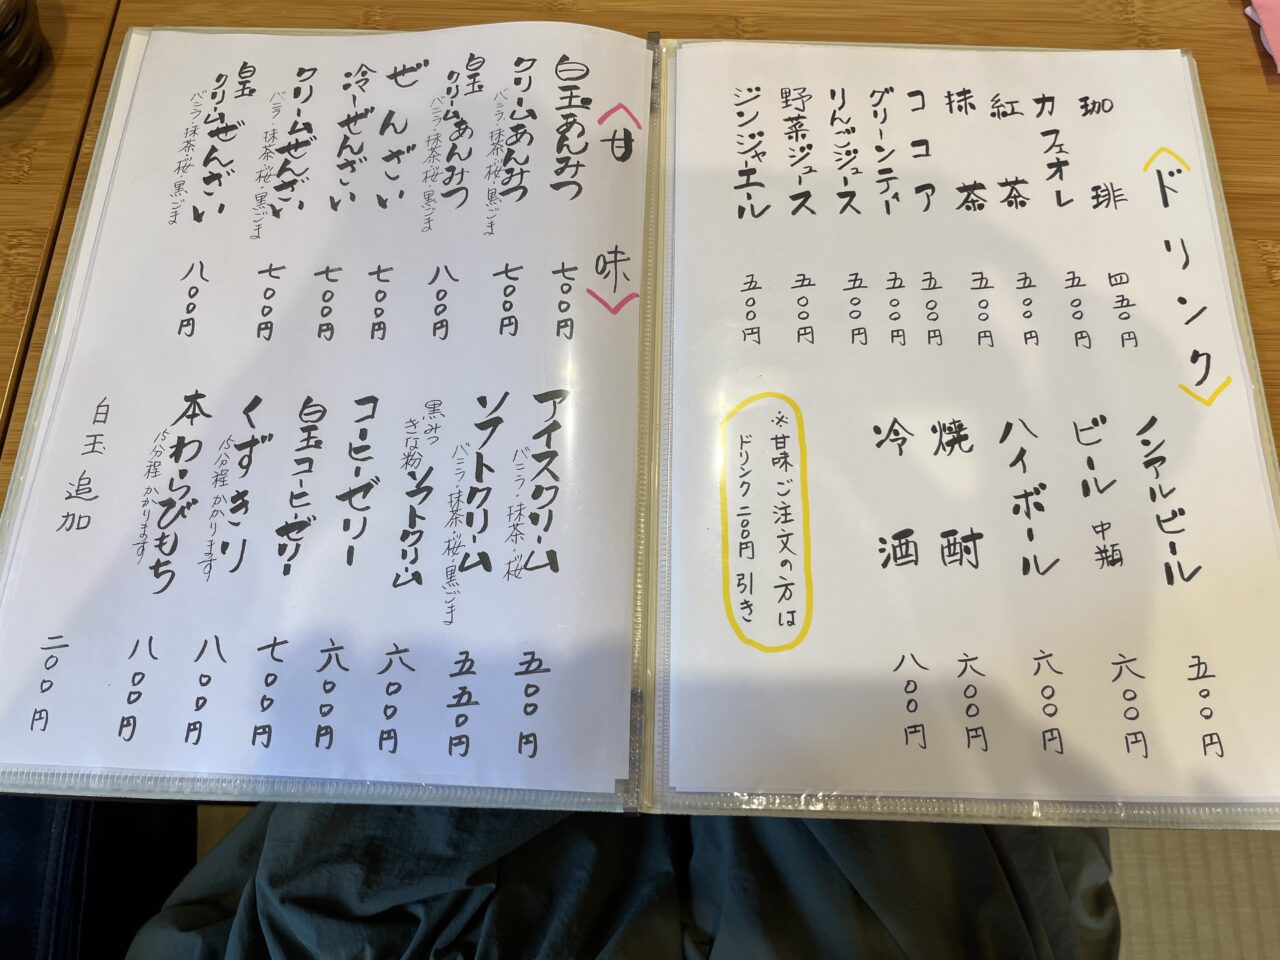 〈ドリンク〉
珈琲 四五〇円
カフェオレ 五〇〇円
紅茶 五〇〇円
抹茶 五〇〇円
ココア 五〇〇円
グリーンティー 五〇〇円
りんごジュース 五〇〇円
野菜ジュース 五〇〇円
ジンジャーエール 五〇〇円
ノンアルビール 五〇〇円
ビール 中瓶 六〇〇円
ハイボール 六〇〇円
焼酎 六〇〇円
冷酒 八〇〇円
※甘味ご注文の方は
ドリンク二〇〇円引き
〈甘味〉
白玉あんみつ 七〇〇円
クリームあんみつ 七〇〇円
バニラ・抹茶・桜・黒ごま
白玉クリームあんみつ 八〇〇円
バニラ・抹茶・桜・黒ごま
ぜんざい 七〇〇円
冷しぜんざい 七〇〇円
クリームぜんざい 七〇〇円
バニラ・抹茶・桜・黒ごま
白玉クリームぜんざい 八〇〇円
バニラ・抹茶・桜・黒ごま
アイスクリーム 五〇〇円
バニラ・抹茶・桜
ソフトクリーム 五五〇円
バニラ・抹茶・桜・黒ごま
黒みつきな粉ソフトクリーム 六〇〇円
コーヒーゼリー 六〇〇円
白玉コーヒーゼリー 七〇〇円
くずきり 八〇〇円
15分程かかります
本わらびもち 八〇〇円
15分程かかります
白玉追加 二〇〇円